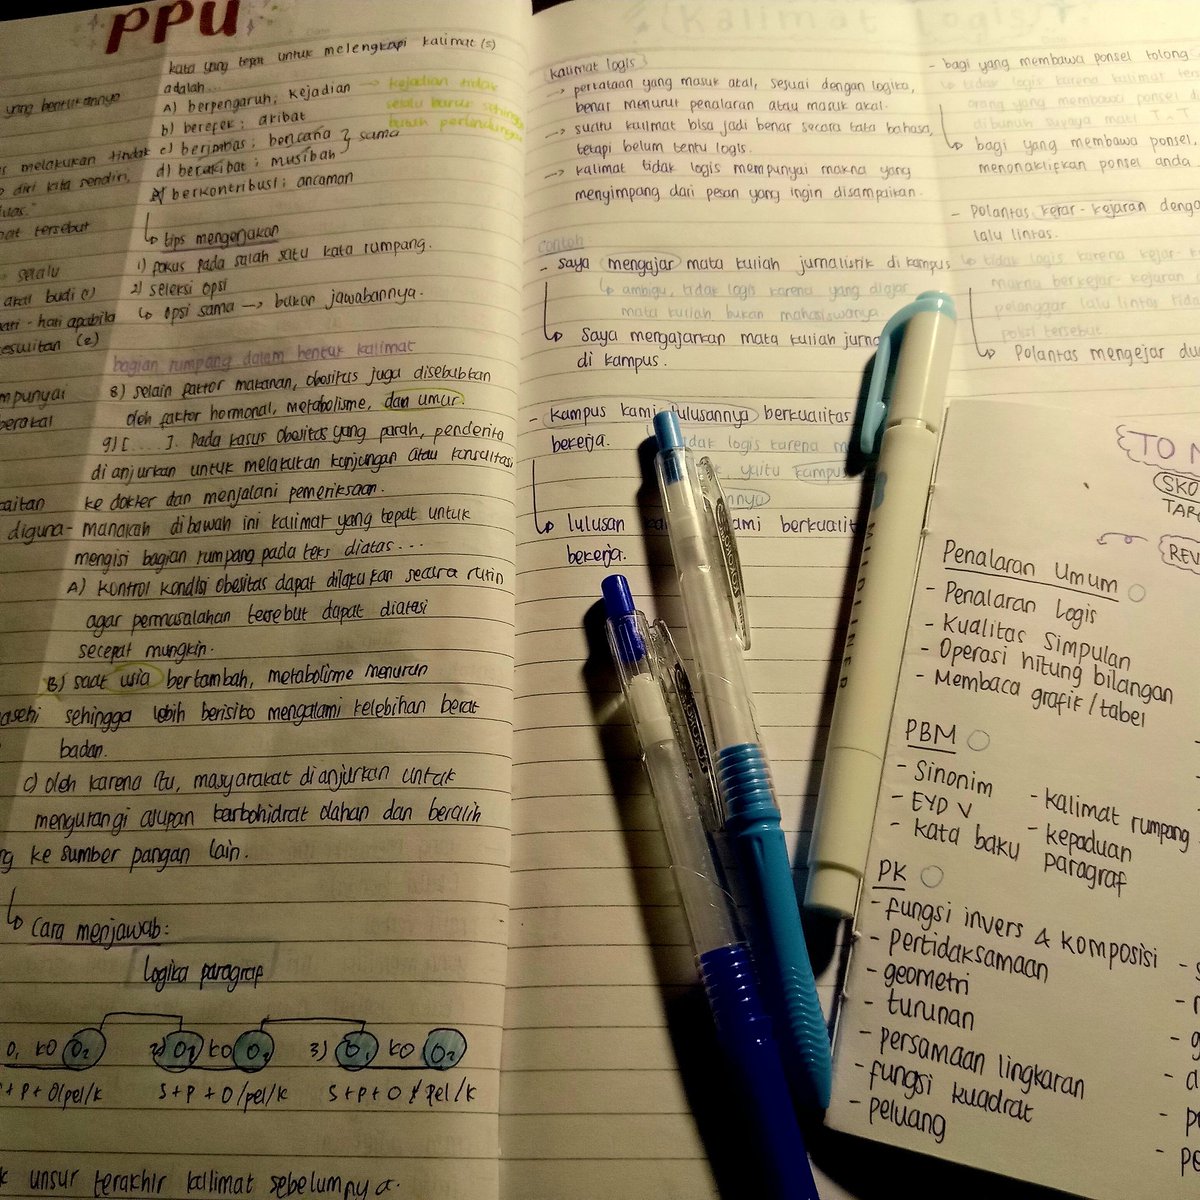 PPU
yang bentuknya
melakukan tindak
diri kita sendiri,
tersebut
selalu
akal budi (1)
hati-hati apabila
kesulitan (2)
mempunyai
berakal
kaitan
diguna-
kata yang tepat untuk melengkapi kalimat (5)
adalah...
A) berpengaruh; kejadian → kejadian tidak
selalu buruk sehingga
butuh perlindungan
b) berefek; akibat
c) berimbas; bencana } sama
d) berakibat; musibah
berkontribusi; ancaman
↳ tips mengerjakan
1) fokus pada salah satu kata rumpang.
2) seleksi opsi
↳ opsi sama → bukan jawabannya.
bagian rumpang dalam bentuk kalimat
8) selain faktor makanan, obesitas juga disebabkan
oleh faktor hormonal, metabolisme, dan umur.
9) [ .... ]. Pada kasus obesitas yang parah, penderita
dianjurkan untuk melakukan kunjungan atau konsultasi
ke dokter dan menjalani pemeriksaan.
manakah dibawah ini kalimat yang tepat untuk
mengisi bagian rumpang pada teks diatas...
A) kontrol kondisi obesitas dapat dilakukan secara rutin
agar permasalahan tersebut dapat diatasi
secepat mungkin.
B) saat usia bertambah, metabolisme menurun
sehingga lebih berisiko mengalami kelebihan berat
badan.
c) oleh karena itu, masyarakat dianjurkan untuk
mengurangi asupan karbohidrat olahan dan beralih
ke sumber pangan lain.
↳ Cara menjawab:
logika paragraf
O1 KO O2 2) O1 KO O2 3) O1 KO O2
+ P + O/pel/k S + P + O/pel/k S + P + O/pel/k
unsur terakhir kalimat sebelumnya.
(Kalimat Logis)
kalimat logis
→ perkataan yang masuk akal, sesuai dengan logika,
benar menurut penalaran atau masuk akal.
→ suatu kalimat bisa jadi benar secara tata bahasa,
tetapi belum tentu logis.
→ kalimat tidak logis mempunyai makna yang
menyimpang dari pesan yang ingin disampaikan.
Contoh
- Saya mengajar mata kuliah jurnalistik di kampus
↳ ambigu, tidak logis karena yang diajar
mata kuliah bukan mahasiswanya.
↳ Saya mengajarkan mata kuliah
di kampus.
- kampus kami lulusannya berkualitas
bekerja.
tidak logis karena
yaitu kampus
↳ lulusan kami
bekerja.
- bagi yang membawa ponsel tolong
↳ tidak logis karena kalimat
orang yang membawa ponsel
dibunuh supaya mati T^T
↳ bagi yang membawa ponsel,
menonaktifkan ponsel anda
- Polantas kejar-kejaran dengan
lalu lintas.
↳ tidak logis karena kejar-
makna berkejar-kejaran
pelanggar lalu lintas
polisi tersebut.
↳ Polantas mengejar
MILDLINER
TO
Penalaran Umum
- Penalaran logis
- Kualitas Simpulan
- Operasi hitung bilangan
- Membaca grafik/tabel
PBM
- Sinonim
- EYD V
- kata baku
- kalimat rumpang
- kepaduan
paragraf
PK
- fungsi invers & komposisi
- pertidaksamaan
- geometri
- turunan
- persamaan lingkaran
- fungsi kuadrat
- peluang